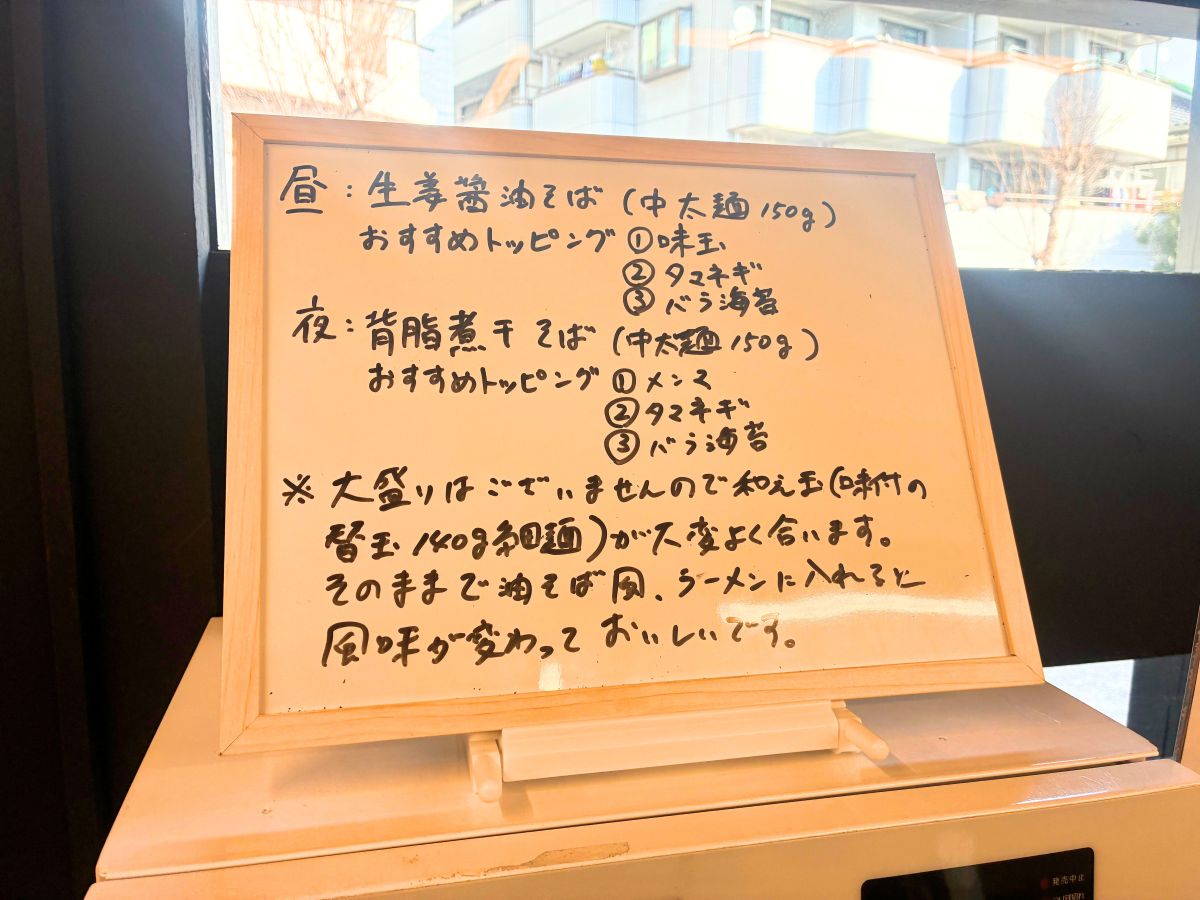 昼：生姜醤油そば(中太麺150g)
おすすめトッピング①味玉
②タマネギ
③バラ海苔
夜：背脂煮干そば(中太麺150g)
おすすめトッピング①メンマ
②タマネギ
③バラ海苔
※大盛りはございませんので和え玉(味付の
替玉140g細麺)が大変よく合います。
そのままで油そば風、ラーメンに入れると
風味が変わっておいしいです。
発売中止